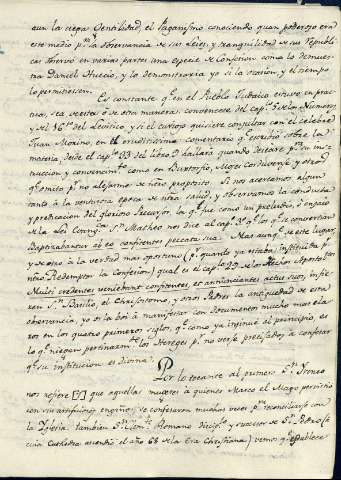 aun la ciega Gentilidad, el Paganismo conociendo quan poderoso era
este medio pa. la observancia de sus Leyes, y tranquilidad de sus Repúbli-
cas observó en varias partes una especie de Confesion como lo demues-
tra Daniel Huecio, y lo demonstraria yo si la ocasion, y el tiempo
lo permitiesen.
Es constante qe. en el Pueblo Judaico estuvo en prac-
tica, sea de este, ó de otra manera: convencese del capo. 5 de los Numeros,
y del 16 del Levitico, y si el curioso quisiere consultar con el celebre
Juan Morino, en el eruditisimo comentario qe. escribió sobre la
materia, desde el cap. 33 del libro 2 hallará quando desearе pa. su ins-
truccion y convencimto. como en Burtorfio, Moyses Cordubense y otros
qe. omito pa. no alejarme de ntro. proposito. Si nos acercamos algun
tanto á la venturosa epoca de ntra. salud, y observamos la conducta
y predicacion del glorioso Precursor, la qe. fue como un preludio, ó ensayo
de la Ley Sn. Matheo nos dice al capo. 3 qe. los qe. se convertian
Baptizabantur ab eo confitentes peccata sua. Mas aunqe. de este lugar,
y de otro á la verdad mas oportuno (pr. quanto ya estaba instituida pr.
ntro. Redemptor la Confesion) qual es el capto. 19 de los Hechos Apostol.
Multi credentes veniebant confitentes, et annuntiantes actus suos, infie-
ren Sn. Basilio, el Chrisostomo, y otros Padres la antiguedad de esta
observancia, yo os la boi á manifestar con documentos mucho mas cla-
ros en los quatro primeros siglos, qe. como ya insinué al principio, es
lo qe. niegan pertinazmte. los Hereges pr. no verse precisados á confesar
qe. su institucion es Divina.
Por lo tocante al primero Sn. Ireneo
nos refiere que aquellas mugeres á quienes Marco el Mago pervirtió
con sus artificiosos engaños, se confesaron muchas veces pa. reconciliarse con
la Iglesia: tambien Sn. Clemte. Romano discipo. y sucesor de Sn. Pedro (á
cuia Cathedra ascendió el año 68 de la Era Christiana) vemos qe. establece